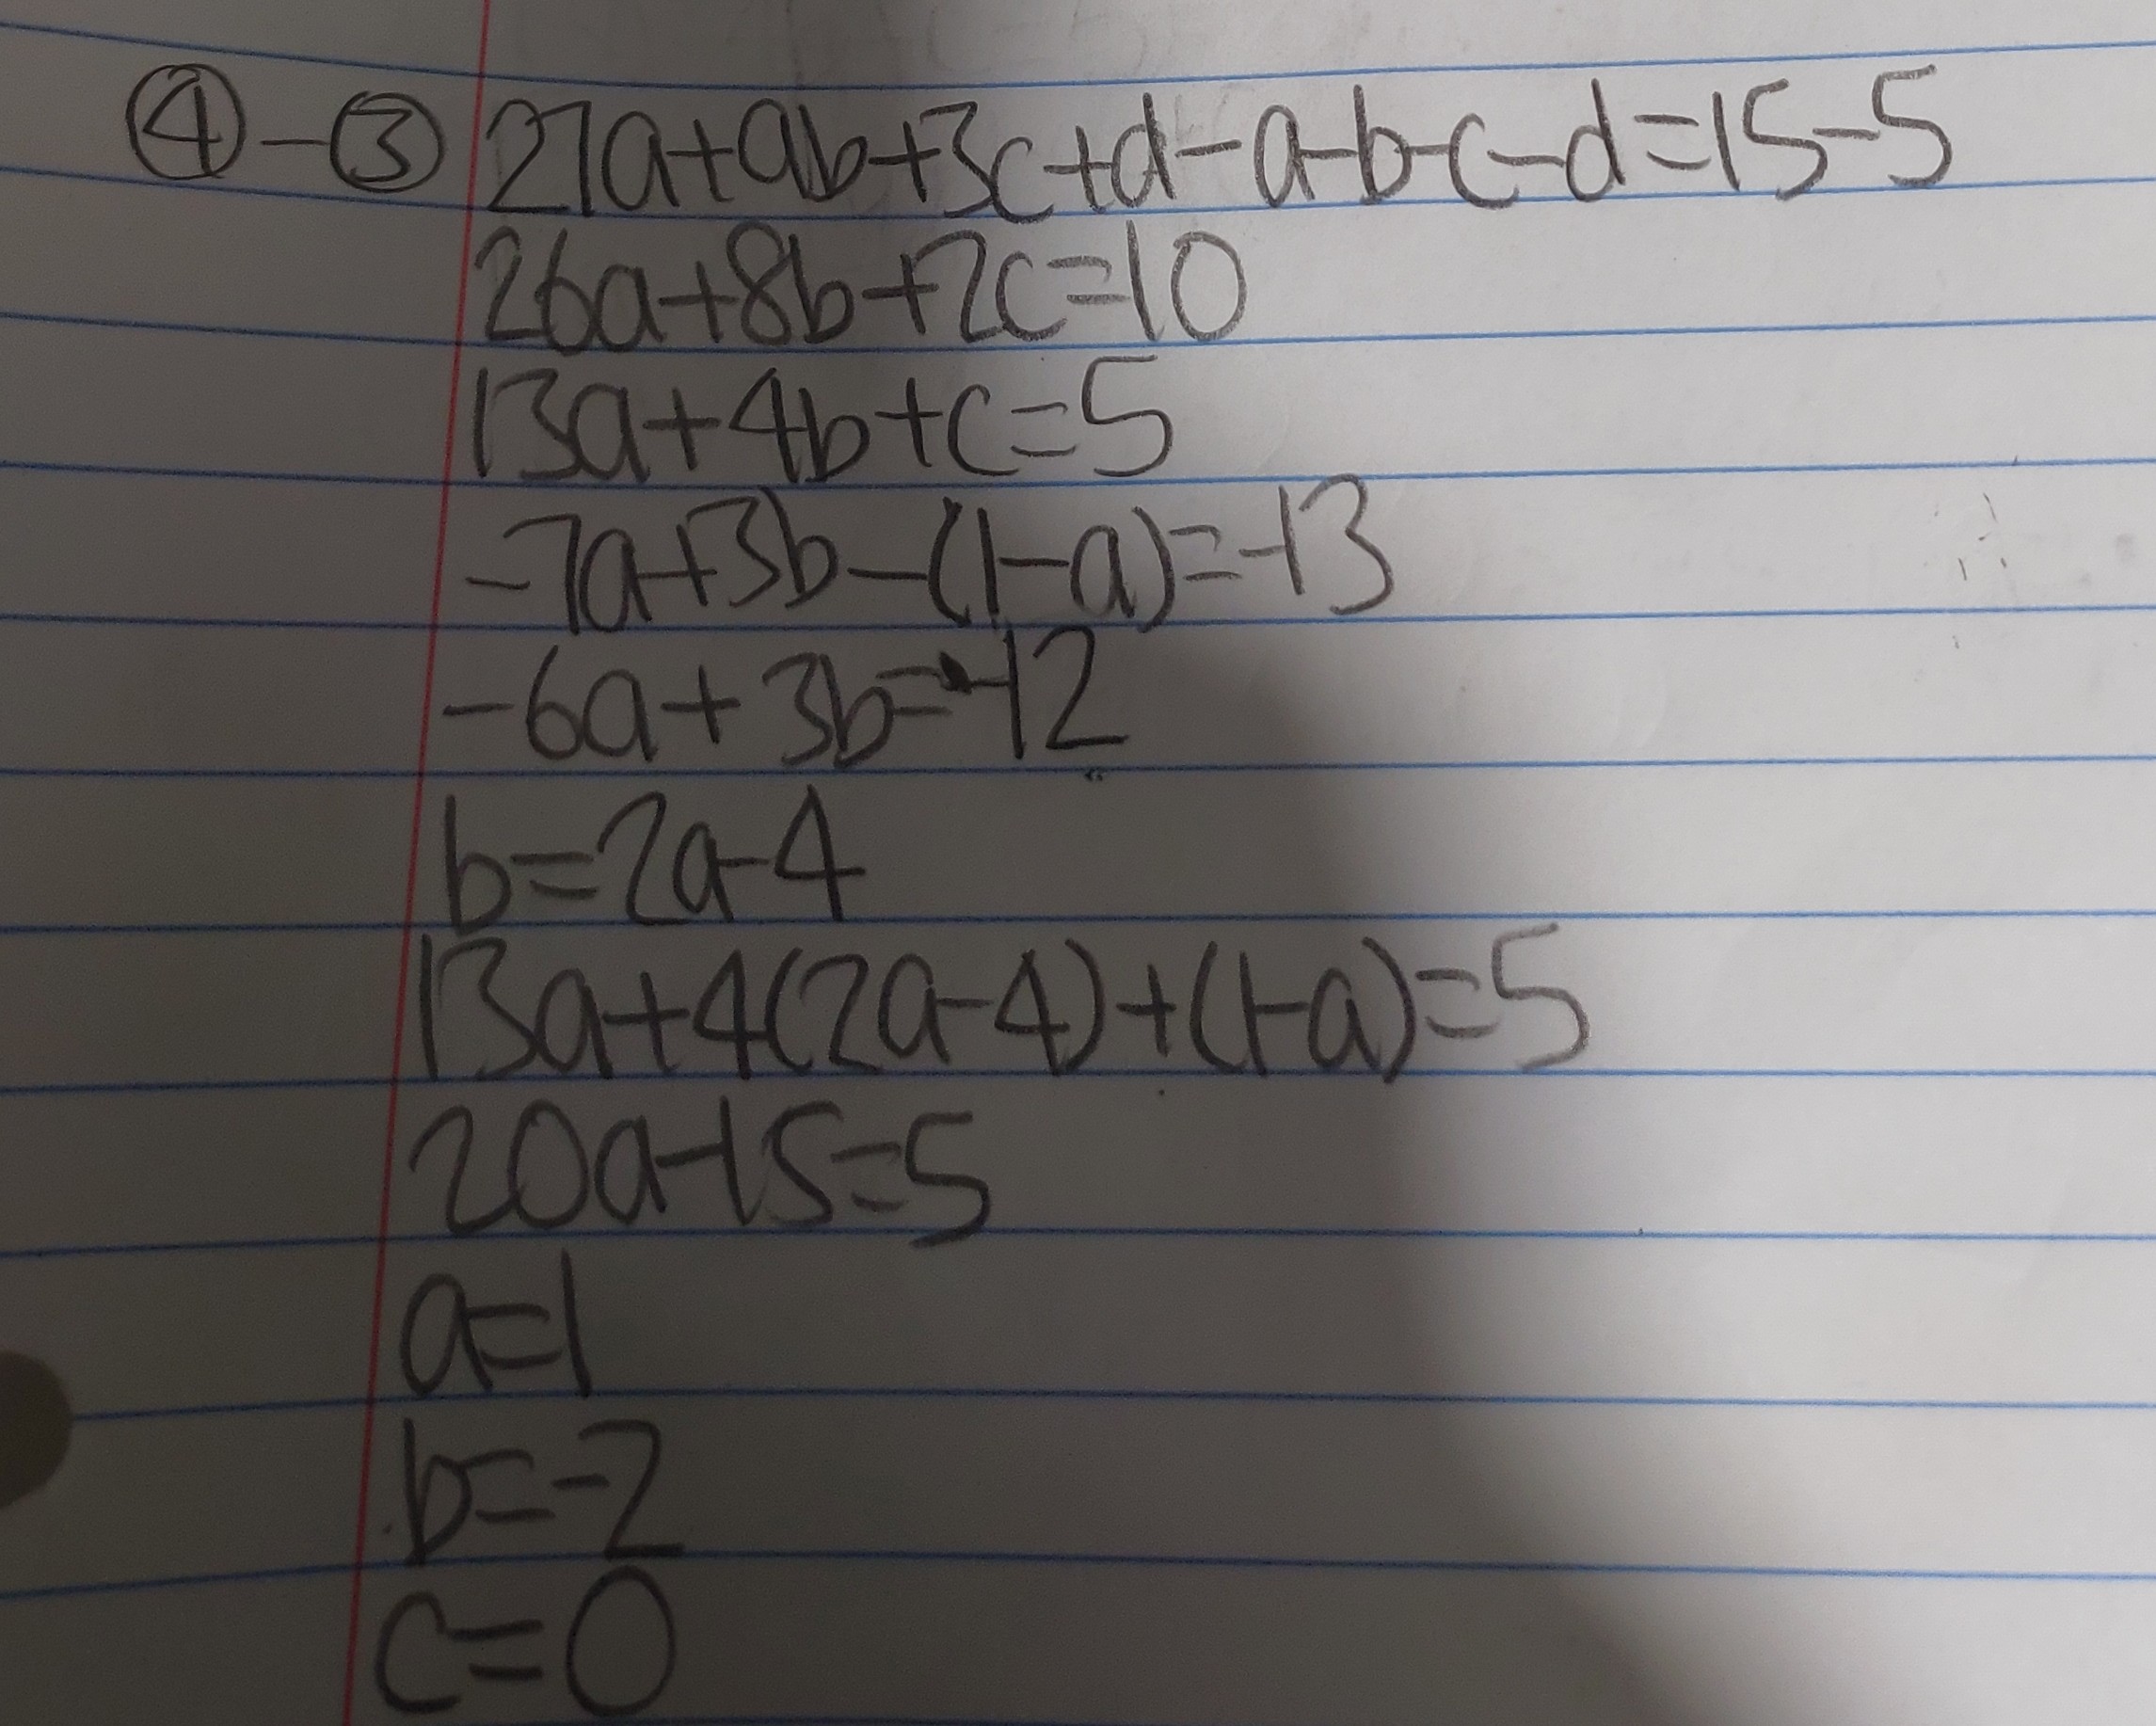 ④-③ 27a+9b+3c+d-a-b-c-d=15-5
26a+8b+2c=10
13a+4b+c=5
-7a+3b-(1-a)=-13
-6a+3b=-12
b=2a-4
13a+4(2a-4)+(1-a)=5
20a-15=5
a=1
b=-2
c=0